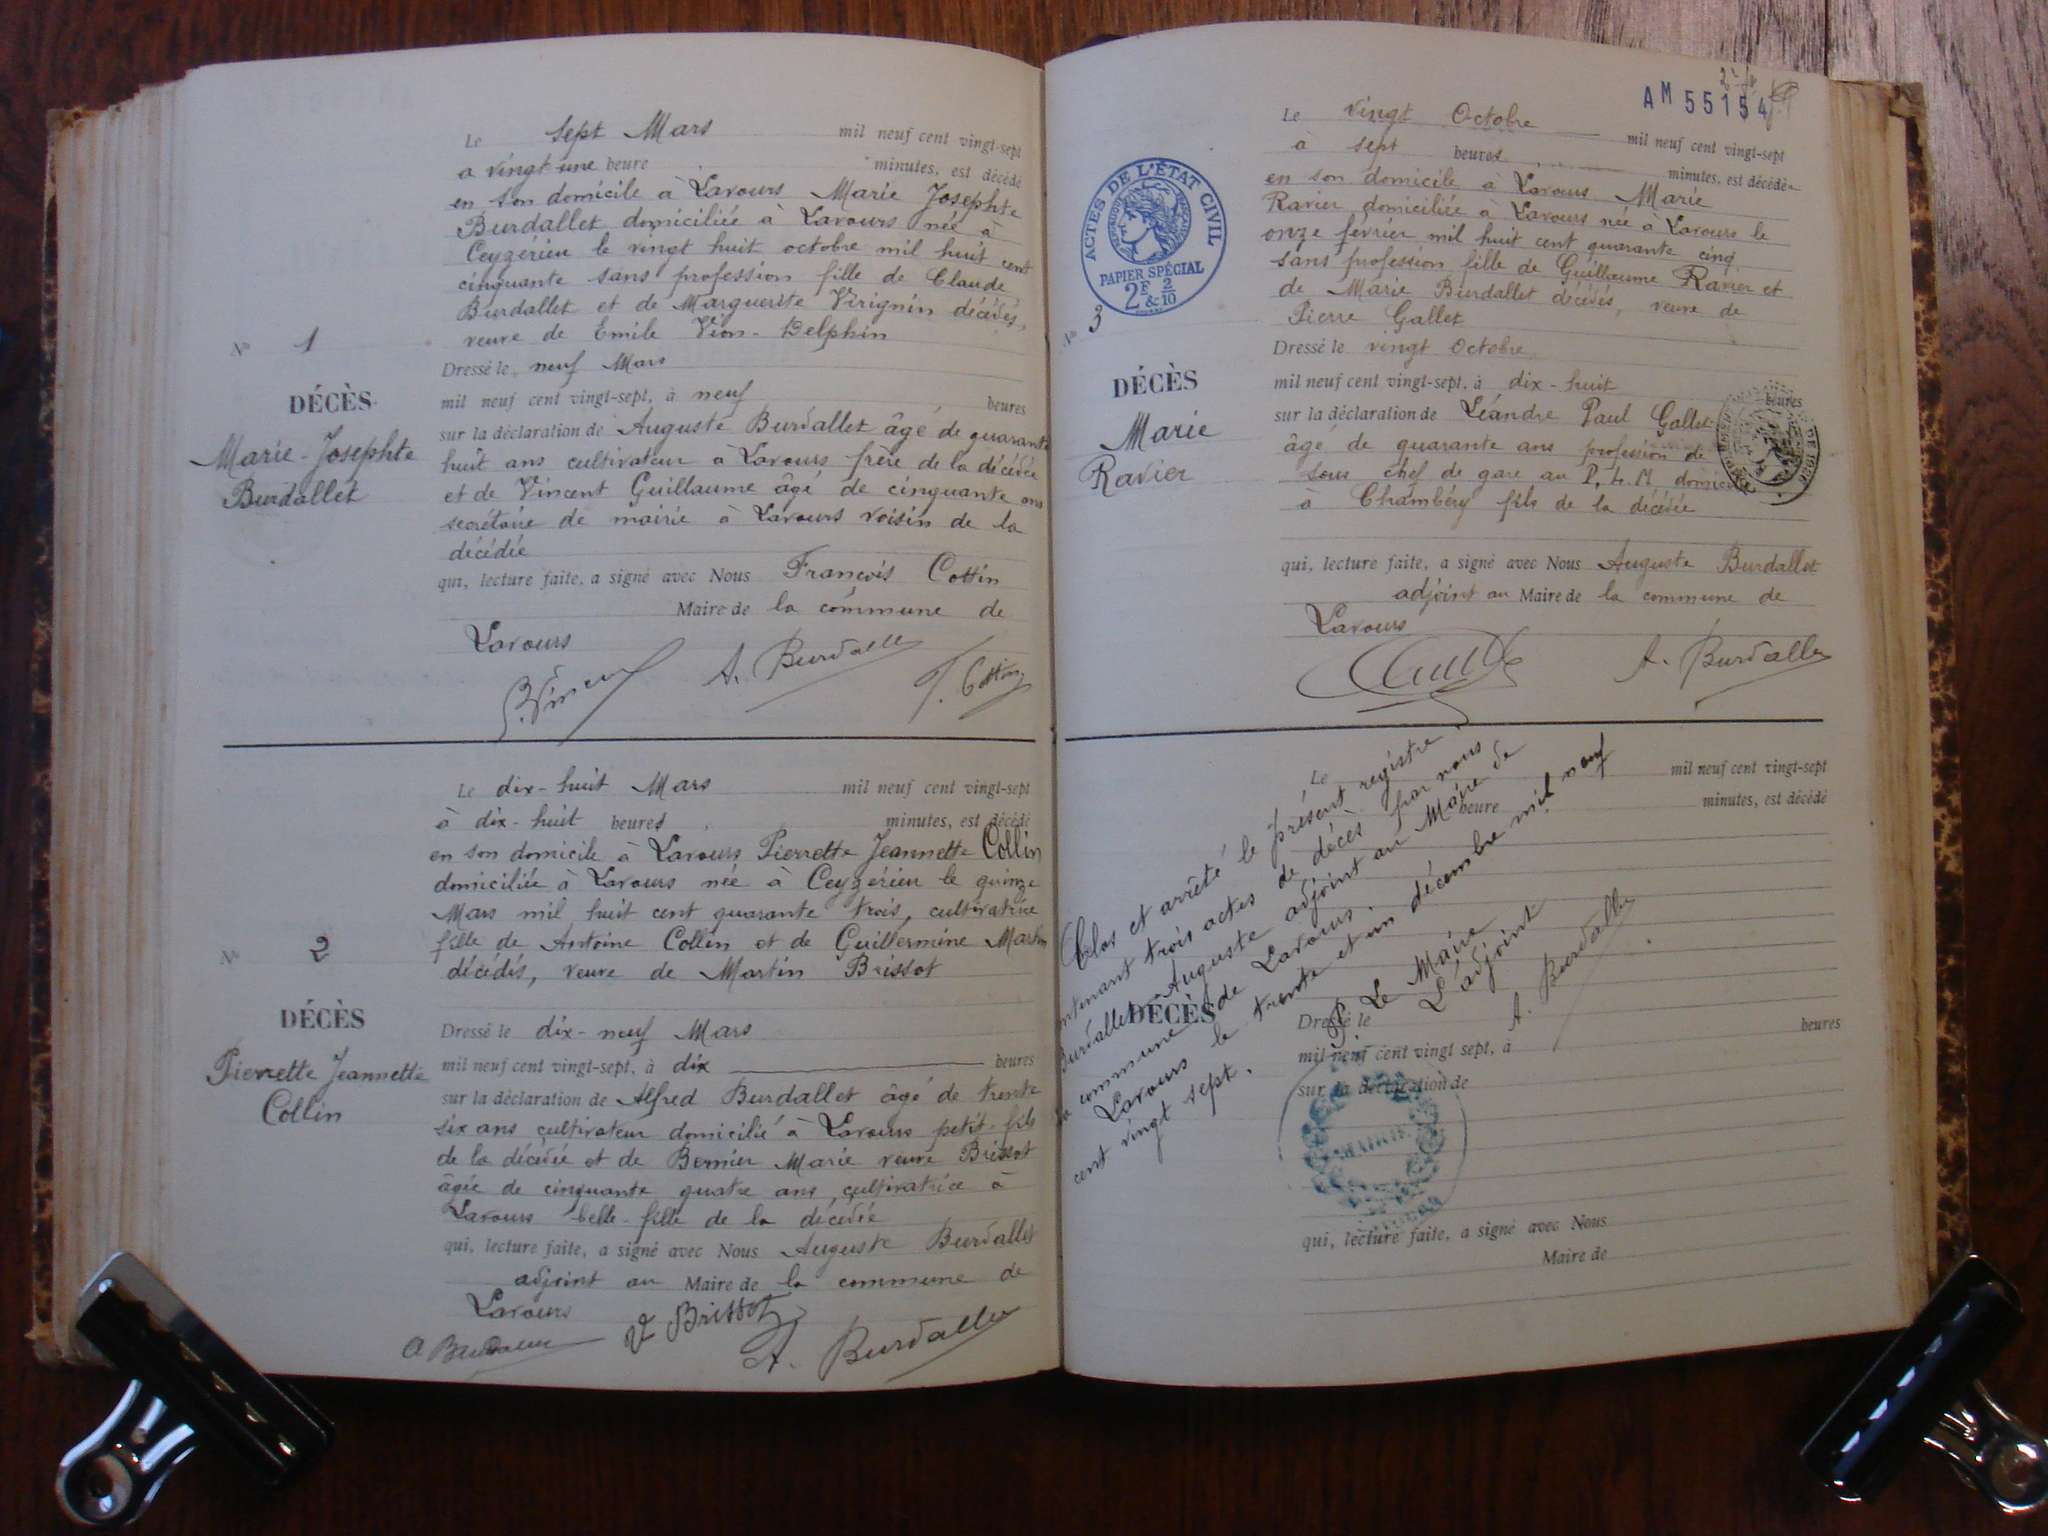 Le sept Mars mil neuf cent vingt-sept
a vingt-une heure minutes, est décédé
en son domicile à Lavours Marie Josephte
Burdallet domiciliée à Lavours née à
Ceyzérieu le vingt huit octobre mil huit cent
cinquante sans profession fille de Claude
Burdallet et de Marguerite Virignin décédés,
veuve de Emile Vion-Delphin
N° 1
DÉCÈS
Marie-Josephte
Burdallet
Dressé le neuf Mars
mil neuf cent vingt-sept, à neuf heures
sur la déclaration de Auguste Burdallet âgé de quarante
huit ans cultivateur à Lavours frère de la décédée
et de Vincent Guillaume âgé de cinquante ans
secrétaire de mairie à Lavours voisin de la
décédée
qui, lecture faite, a signé avec Nous François Cottin
Maire de la commune de
Lavours
A. Burdallet
F. Cottin
Le dix-huit Mars mil neuf cent vingt-sept
à dix-huit heures minutes, est décédé
en son domicile à Lavours Pierrette Jeannette Collin
domiciliée à Lavours née à Ceyzérieu le quinze
Mars mil huit cent quarante trois, cultivatrice
fille de Antoine Collin et de Guillermine Martin
décédés, veuve de Martin Brissot
N° 2
DÉCÈS
Pierrette Jeannette
Collin
Dressé le dix-neuf Mars
mil neuf cent vingt-sept, à dix heures
sur la déclaration de Alfred Burdallet âgé de trente
six ans cultivateur domicilié à Lavours petit-fils
de la décédée et de Bernier Marie veuve Brissot
âgée de cinquante quatre ans, cultivatrice à
Lavours belle-fille de la décédée
qui, lecture faite, a signé avec Nous Auguste Burdallet
adjoint au Maire de la commune de
Lavours
V Brissot
A. Burdallet
AM 55154
ACTES DE L'ÉTAT CIVIL
PAPIER SPÉCIAL
2F & 2/10
Le vingt Octobre mil neuf cent vingt-sept
à sept heures minutes, est décédé
en son domicile à Lavours Marie
Ravier domiciliée à Lavours née à Lavours le
onze février mil huit cent quarante cinq
sans profession fille de Guillaume Ravier et
de Marie Burdallet décédés, veuve de
Pierre Gallet
N° 3
DÉCÈS
Marie
Ravier
Dressé le vingt Octobre
mil neuf cent vingt-sept, à dix-huit heures
sur la déclaration de Léandre Paul Gallet
âgé de quarante ans profession de
sous chef de gare au P.L.M domicilié
à Chambéry fils de la décédée
qui, lecture faite, a signé avec Nous Auguste Burdallet
adjoint au Maire de la commune de
Lavours
A. Burdallet
Le mil neuf cent vingt-sept
heure minutes, est décédé
DÉCÈS
Dressé le
mil neuf cent vingt sept, à heures
sur la déclaration de
qui, lecture faite, a signé avec Nous
Maire de
Clos et arrêté le présent registre
contenant trois actes de décès par nous
Burdallet Auguste adjoint au Maire de
la commune de Lavours.
Lavours le trente et un décembre mil neuf
cent vingt sept.
P. Le Maire
L'adjoint
A. Burdallet
MAIRIE